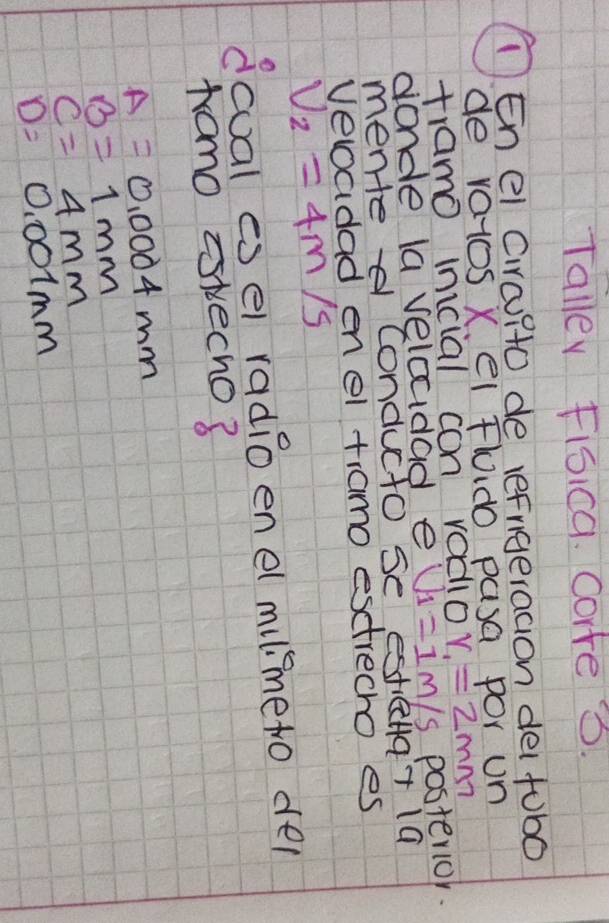 Taller Fisica. Corte 3.
① En el circuito de refrigeracion del tubo
de rayos X el fluido pasa por un
tramo inicial con radio r₁ = 2mm
donde la velocidad e V₁ = 1m/s posterior.
mente el conducto se estrecha y la
velocidad en el tramo esctrecho es
V₂ = 4m/s
¿cual es el radio en el milimetro del
tramo estrecho?
A = 0,0004 mm
B = 1 mm
C = 4 mm
D = 0,001mm